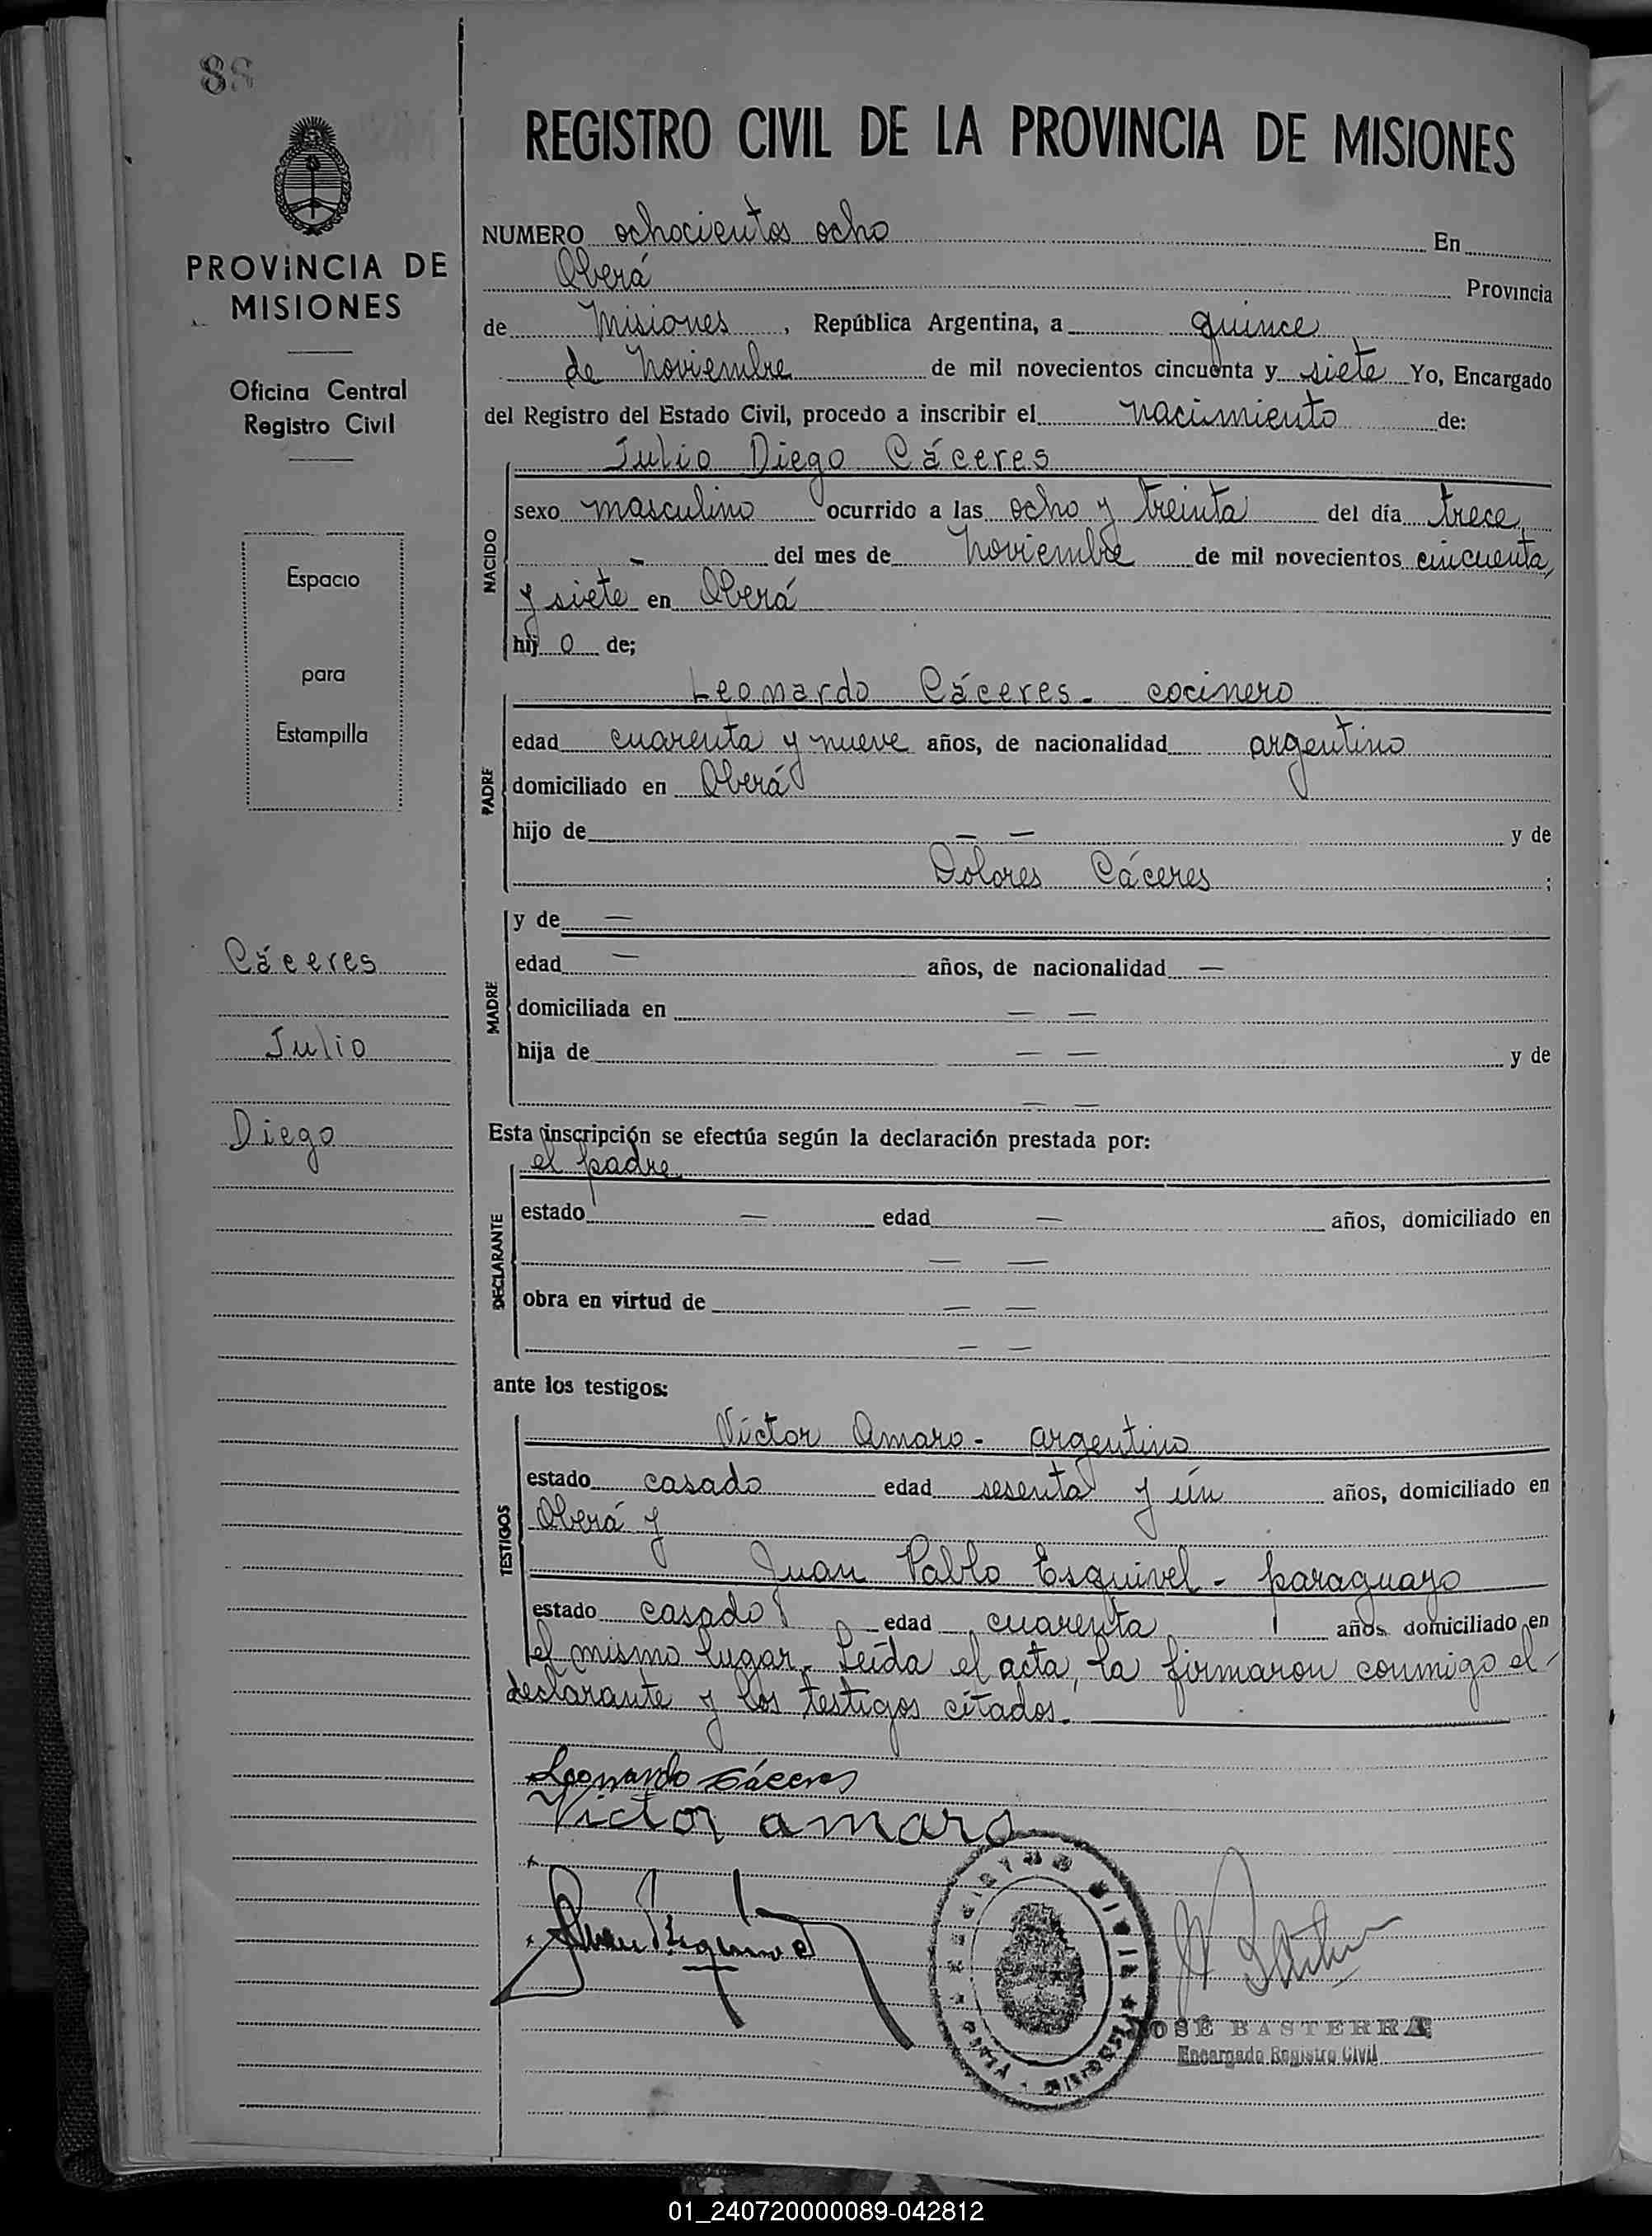 88
PROVINCIA DE
MISIONES
Oficina Central
Registro Civil
Espacio
para
Estampilla
Cáceres
Julio
Diego
REGISTRO CIVIL DE LA PROVINCIA DE MISIONES
NUMERO ochocientos ocho En
Oberá Provincia
de Misiones, República Argentina, a quince
de Noviembre de mil novecientos cincuenta y siete Yo, Encargado
del Registro del Estado Civil, procedo a inscribir el nacimiento de:
Julio Diego Cáceres
NACIDO
sexo masculino ocurrido a las ocho y treinta del día trece
- del mes de Noviembre de mil novecientos cincuenta
y siete en Oberá
hij o de;
PADRE
Leonardo Cáceres - cocinero
edad cuarenta y nueve años, de nacionalidad argentino
domiciliado en Oberá
hijo de — — y de
Dolores Cáceres ;
MADRE
y de —
edad — años, de nacionalidad —
domiciliada en — —
hija de — — y de
— —
Esta inscripción se efectúa según la declaración prestada por:
DECLARANTE
el padre
estado — edad — años, domiciliado en
— —
obra en virtud de — —
— —
ante los testigos:
TESTIGOS
Víctor Amaro - argentino
estado casado edad sesenta y un años, domiciliado en
Oberá y
Juan Pablo Esquivel - paraguayo
estado casado edad cuarenta años domiciliado en
el mismo lugar. Leída el acta, la firmaron conmigo el
declarante y los testigos citados.
Leonardo Cáceres
Victor amaro
Juan Esquivel
REGISTRO CIVIL
JOSÉ BASTERRA
Encargado Registro Civil
01_240720000089-042812